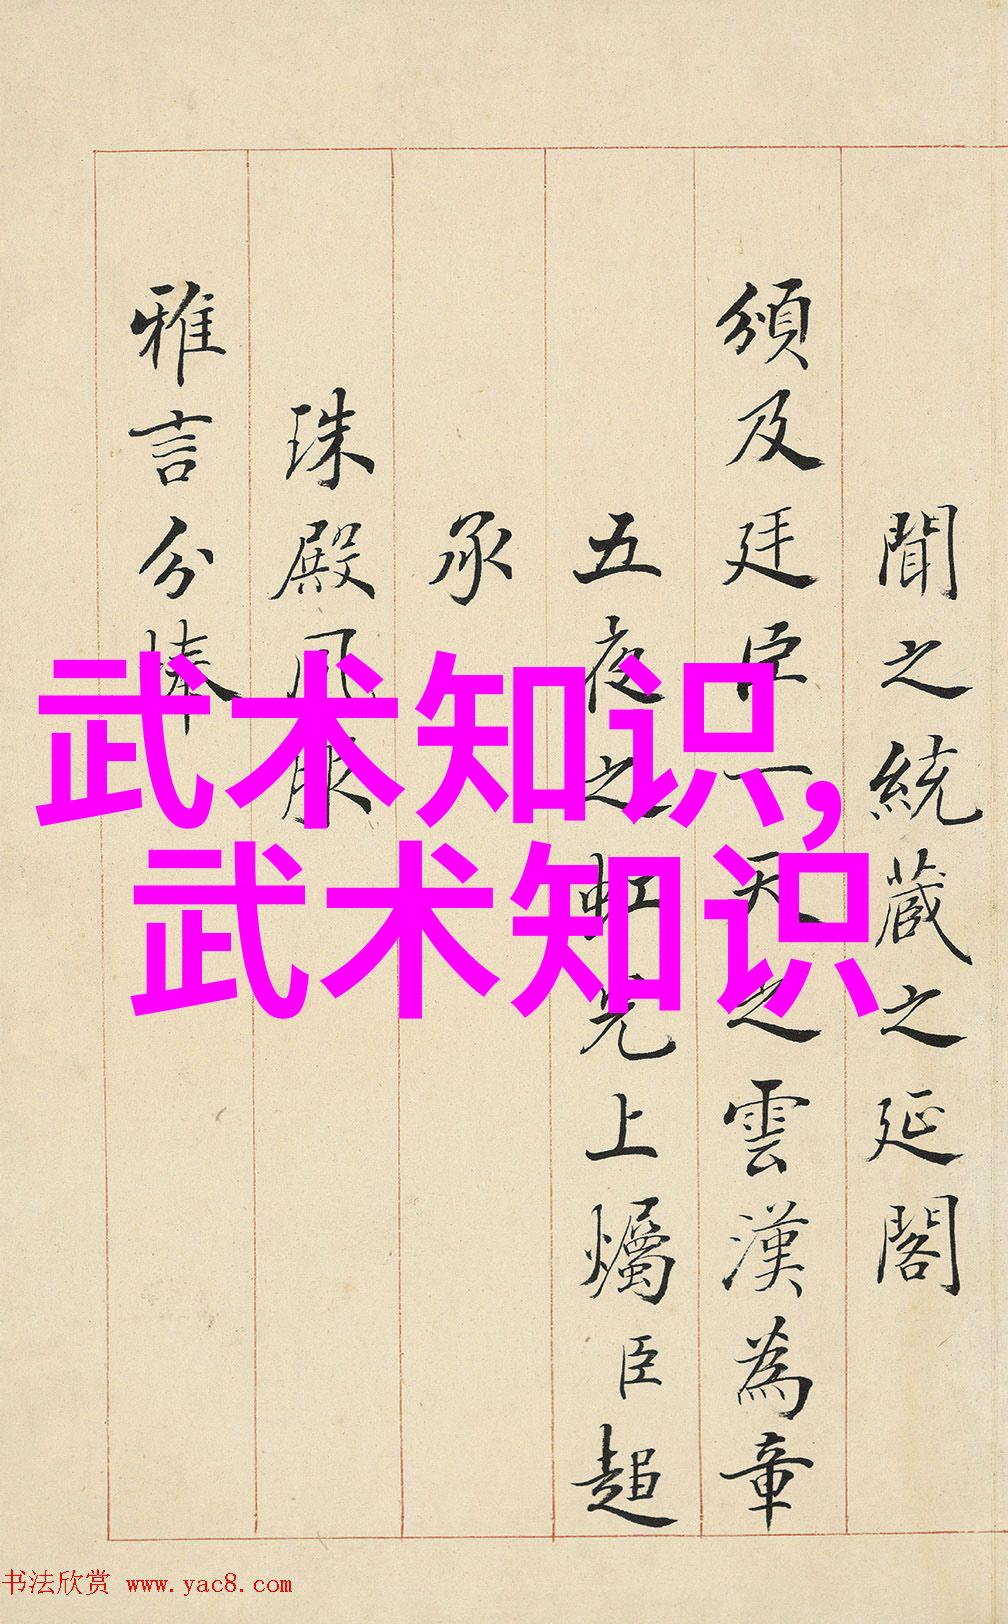 聞之統蔵之延閣
頒及廷臣一天之雲漢為章
五夜之虹光上爥臣超
承
珠殿
雅言分捧
武术知识,
武术知识
书法欣赏 www.yac8.com